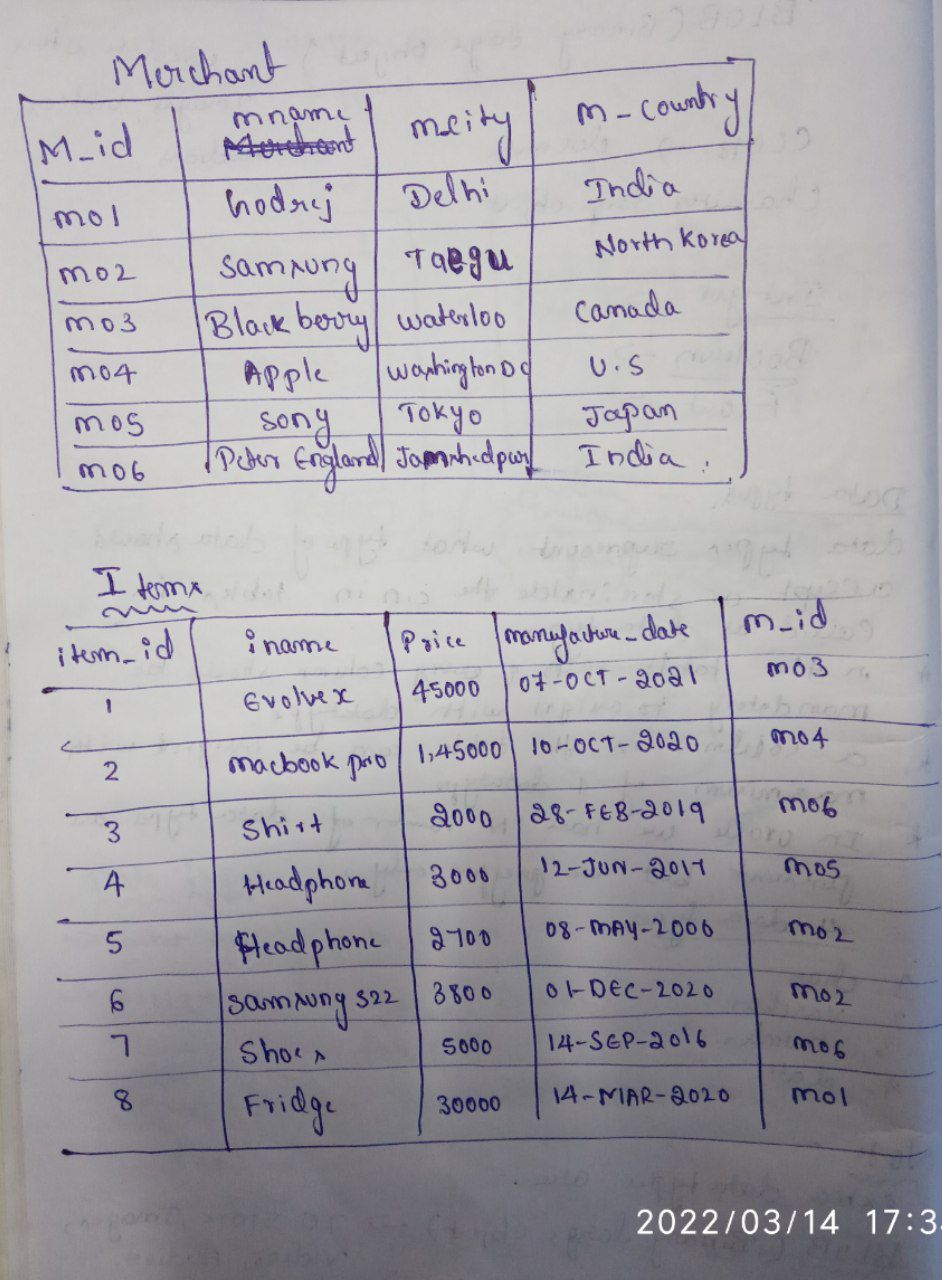 Merchant
M_id mname mcity m-country
Merchant
m01 Godrej Delhi India
m02 Samsung Taegu North Korea
m03 Blackberry waterloo Canada
m04 Apple washington DC U.S
m05 Sony Tokyo Japan
m06 Peter England Jamshedpur India
Items
item_id iname Price manufacture_date m_id
1 Evolve x 45000 07-OCT-2021 m03
2 macbook pro 1,45000 10-OCT-2020 m04
3 Shirt 2000 28-FEB-2019 m06
4 Headphone 3000 12-JUN-2017 m05
5 Headphone 2700 08-MAY-2006 m02
6 Samsung S22 3800 01-DEC-2020 m02
7 Shoes 5000 14-SEP-2016 m06
8 Fridge 30000 14-MAR-2020 m01
2022/03/14 17:3